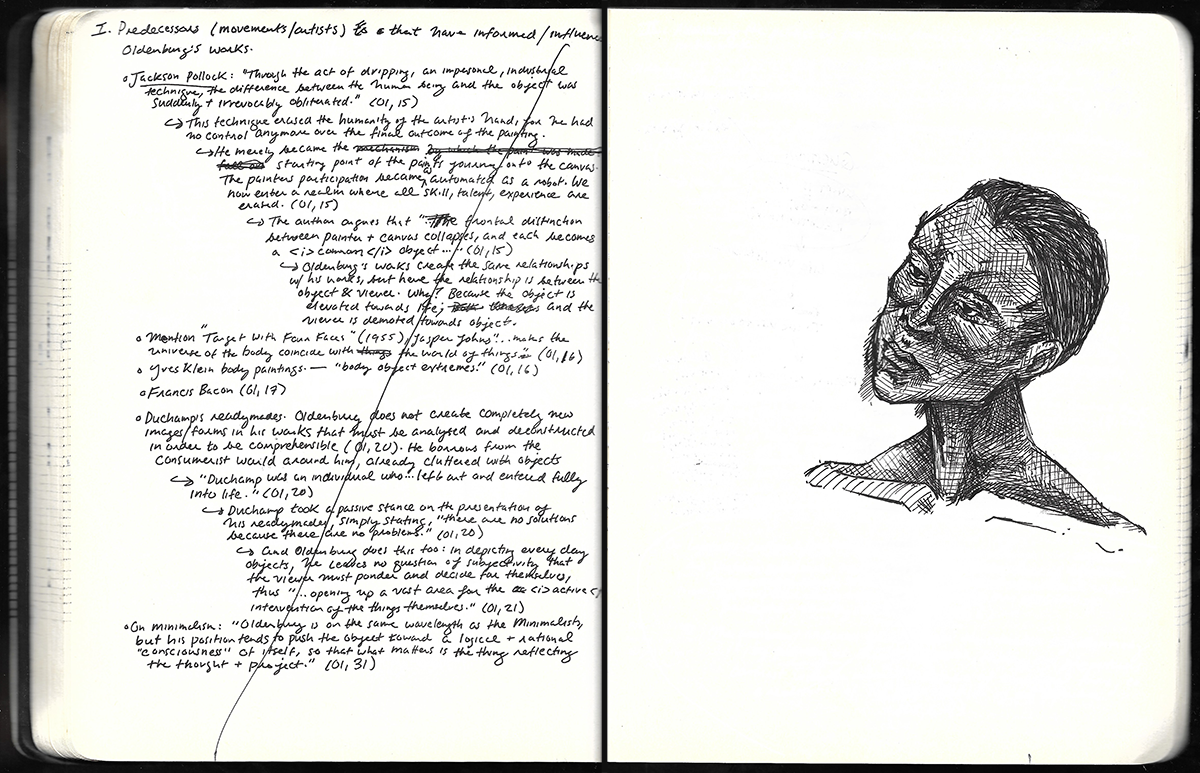 I. Predecessors (movements/artists) that have informed/influence
Oldenburg's works.
Jackson Pollock: "Through the act of dripping, an impersonal, industrial
technique, the difference between the human being and the object was
suddenly + irrevocably obliterated." (O1, 15)
↳ This technique erased the humanity of the artist's hand, for he had
no control anymore over the final outcome of the painting.
↳ He merely became the mechanism by which the paint was made
starting point of the paint's journey onto the canvas.
The painter's participation became as automated as a robot. We
now enter a realm where all skill, talent, experience are
erased. (O1, 15)
↳ The author argues that "The frontal distinction
between painter + canvas collapses, and each becomes
a <i>common</i> object..." (O1, 15)
↳ Oldenburg's works create the same relationships
w/ his works, but here the relationship is between the
object & viewer. Why? Because the object is
elevated towards life, and the
viewer is demoted towards object.
Mention "Target with Four Faces" (1955), Jasper Johns "...makes the
universe of the body coincide with things the world of things." (O1, 16)
Yves Klein body paintings. — "body object extremes." (O1, 16)
Francis Bacon (O1, 17)
Duchamp's readymades. Oldenburg does not create completely new
images/forms in his works that must be analysed and deconstructed
in order to be comprehensible (O1, 20). He borrows from the
consumerist world around him, already cluttered with objects
↳ "Duchamp was an individual who... left art and entered fully
into life." (O1, 20)
↳ Duchamp took a passive stance on the presentation of
his readymades, simply stating, "there are no solutions
because there are no problems." (O1, 20)
↳ And Oldenburg does this too: in depicting every day
objects, he leaves no question of subjectivity that
the viewer must ponder and decide for themselves,
thus "...opening up a vast area for the <i>active</
intervention of the things themselves." (O1, 21)
On minimalism: "Oldenburg is on the same wavelength as the Minimalists,
but his position tends to push the object toward a logical + rational
"consciousness" of itself, so that what matters is the thing reflecting
the thought + project." (O1, 31)